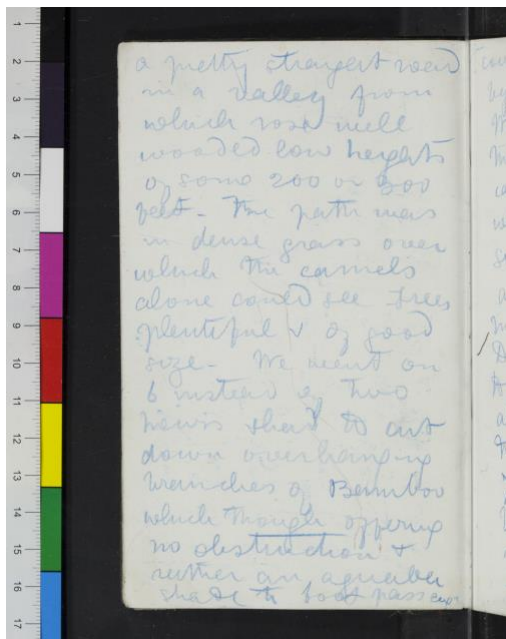 a pretty straight road
in a valley from
which rose well
wooded low heights
of some 200 or 300
feet - The path was
in dense grass over
which the camels
alone could see Trees
plentiful & of good
size - We went on
6 instead of two
hours & had to cut
down overhanging
branches of Bamboo
which though offering
no obstruction &
rather an
shade to foot pass